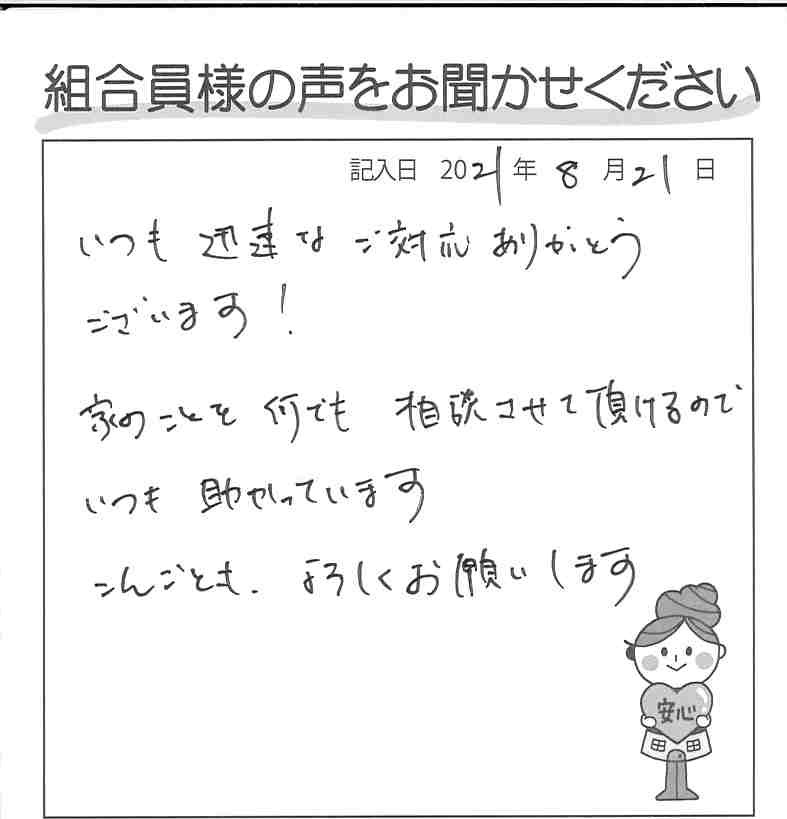 組合員様の声をお聞かせください
記入日 2021年 8月21日
いつも 迅速な ご対応 ありがとう
ございます!
家のことを 何でも 相談させて頂けるので
いつも 助かっています
こんごとも、よろしくお願いします
安心